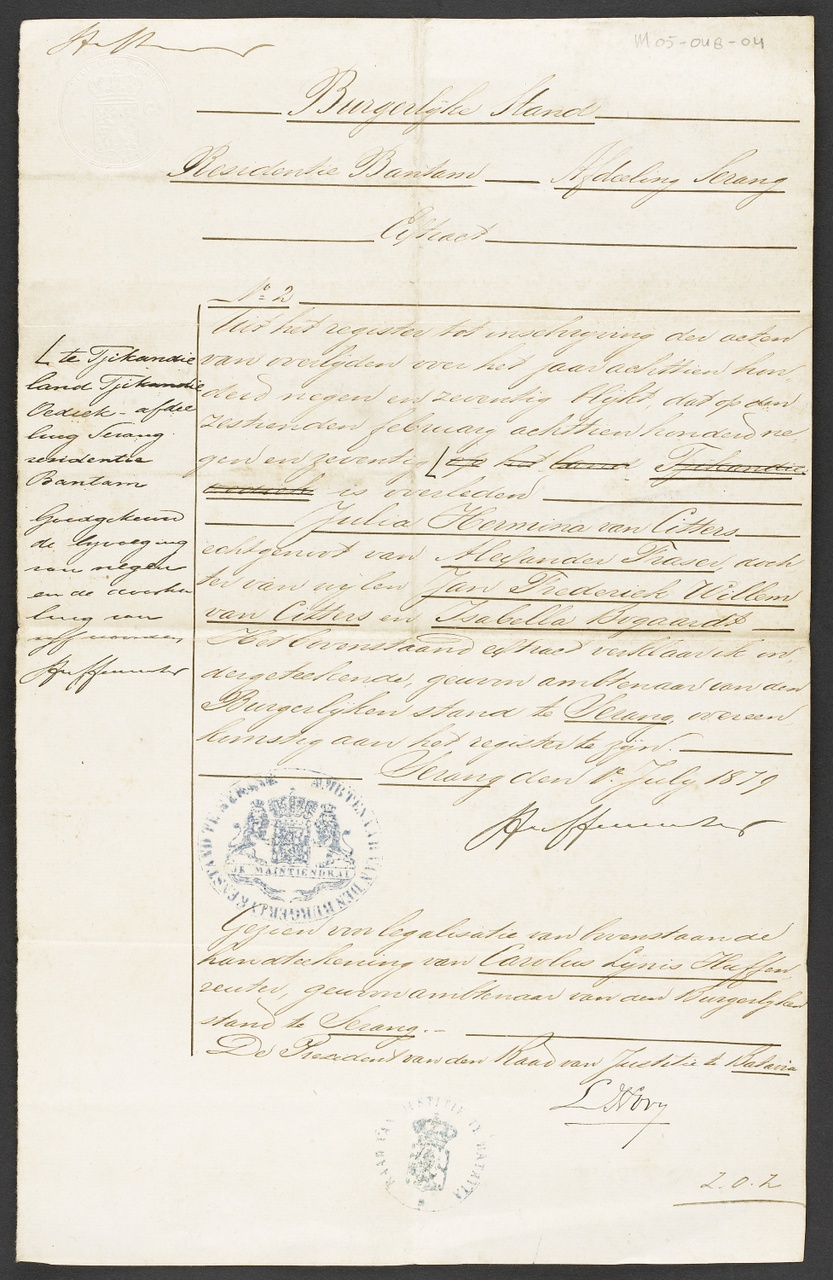 M 05-04B-04
Burgerlijke Stand
Residentie Bantam — Afdeeling Serang
Extract
No. 2
Uit het register tot inschrijving der acten
van overlijden over het jaar achttien hon-
derd negen en zeventig blijkt, dat op den
zestienden february achttien honderd ne-
gen en zeventig op het land Tjikandie
oedick is overleden
Julia Hermina van Citters
echtgenoot van Alexander Fraser, doch-
ter van wijlen Jan Frederick Willem
van Citters en Isabella Bogaardt
te Tjikandie
land Tjikandie
Oedick - afdee
ling Serang
residentie
Bantam
Goedgekeurd
de byvoeging
van negen
en de doorha
ling van
vyf woorden
Het bovenstaand extract verklaar ik on-
dergeteekende, gewoon ambtenaar van den
Burgerlijken stand te Serang, overeen
komstig aan het register te zijn.
Serang den 1e July 1879
AMBTENAAR VAN DEN BURGERLYKEN STAND TE SERANG
JE MAINTIENDRAI
Gezien voor legalisatie van bovenstaande
handteekening van Carolus Lynis Huffen
reuter, gewoon ambtenaar van den Burgerlijken
stand te Serang.
De President van den Raad van Justitie te Batavia
RAAD VAN JUSTITIE TE BATAVIA
Z.O.Z